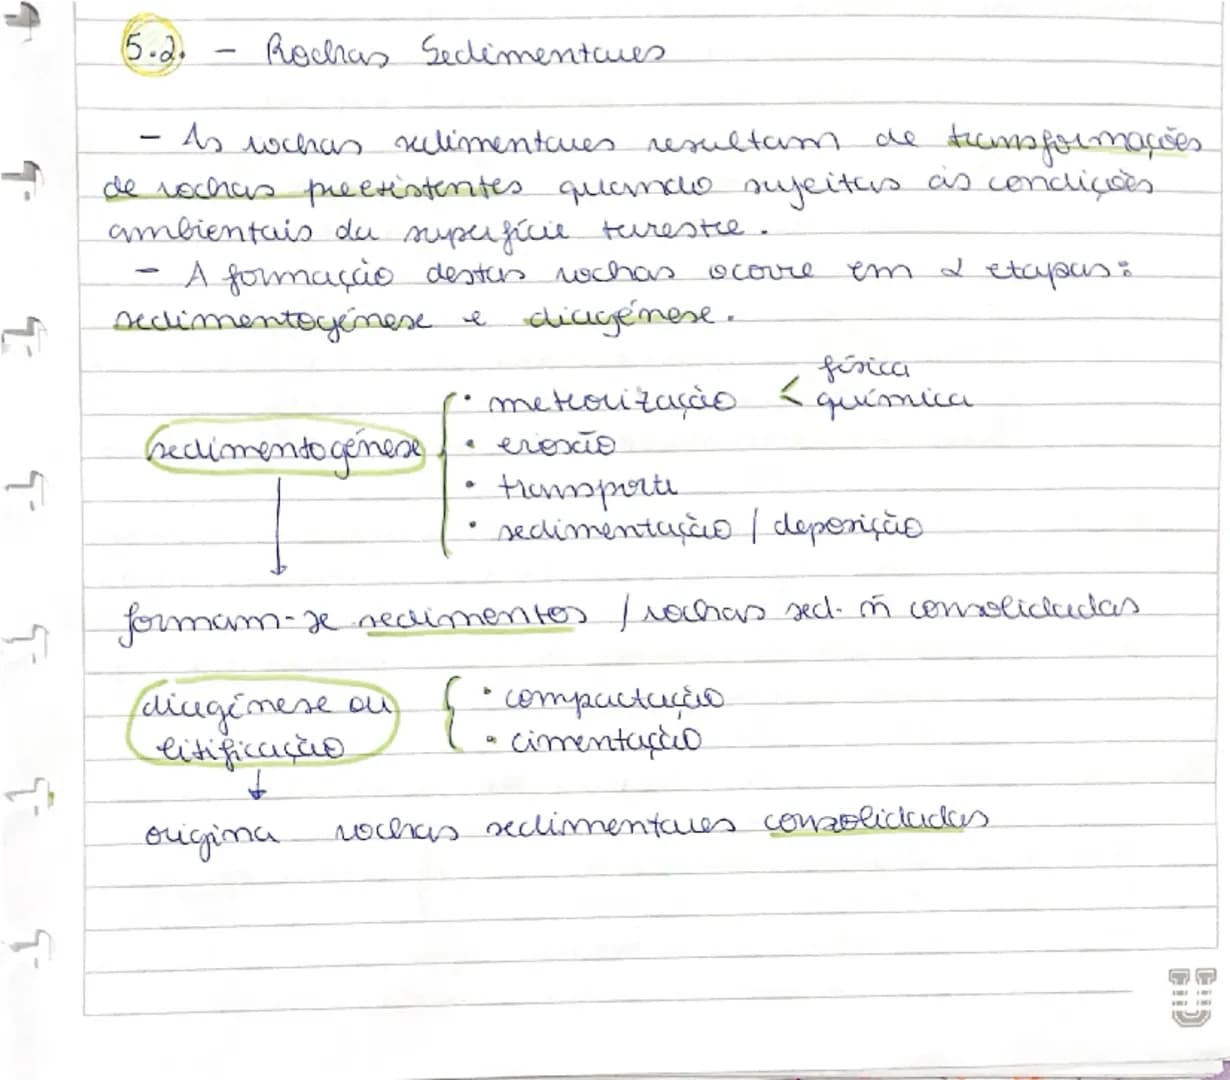 5.2. - Rochas Sedimentares
- As rochas sedimentares resultam de transformações
de rochas preexistentes quando sujeitas às condições
ambientais da superfície terestre.
- A formação destas rochas ocorre em 2 etapas:
sedimentogénese e diagénese.
física
• meteorização < química
sedimentogénese • erosão
• transporte
• sedimentação / deposição
formam-se sedimentos / rochas sed. ñ consolidadas
diagénese ou • compactação
litificação • cimentação
origina rochas sedimentares consolidadas
U